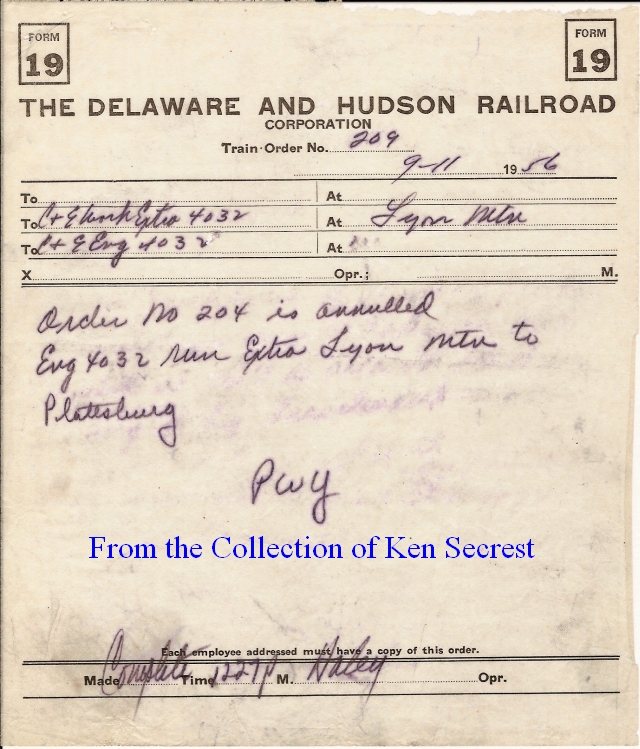 FORM 19
FORM 19
THE DELAWARE AND HUDSON RAILROAD
CORPORATION
Train Order No. 209
9-11 1956
To At
To C+E Work Extra 4032 At Lyon Mtn
To C+E Eng 4032 At
X Opr.; M.
Order No 204 is annulled
Eng 4032 run Extra Lyon Mtn to
Plattsburg
PWY
From the Collection of Ken Secrest
Each employee addressed must have a copy of this order.
Made Complete Time 1227P M. Haley Opr.